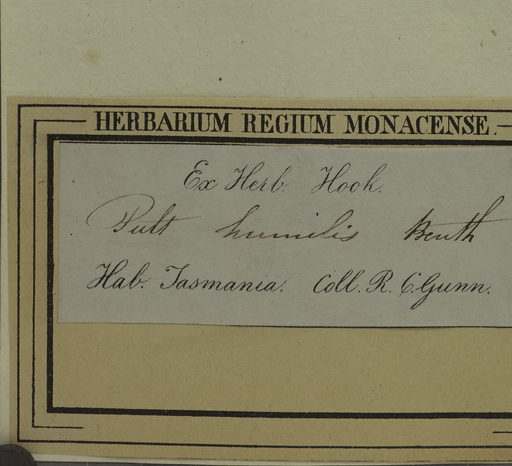 HERBARIUM REGIUM MONACENSE.
Ex Herb. Hook.
Pult humilis Benth
Hab. Tasmania. Coll. R. C. Gunn.